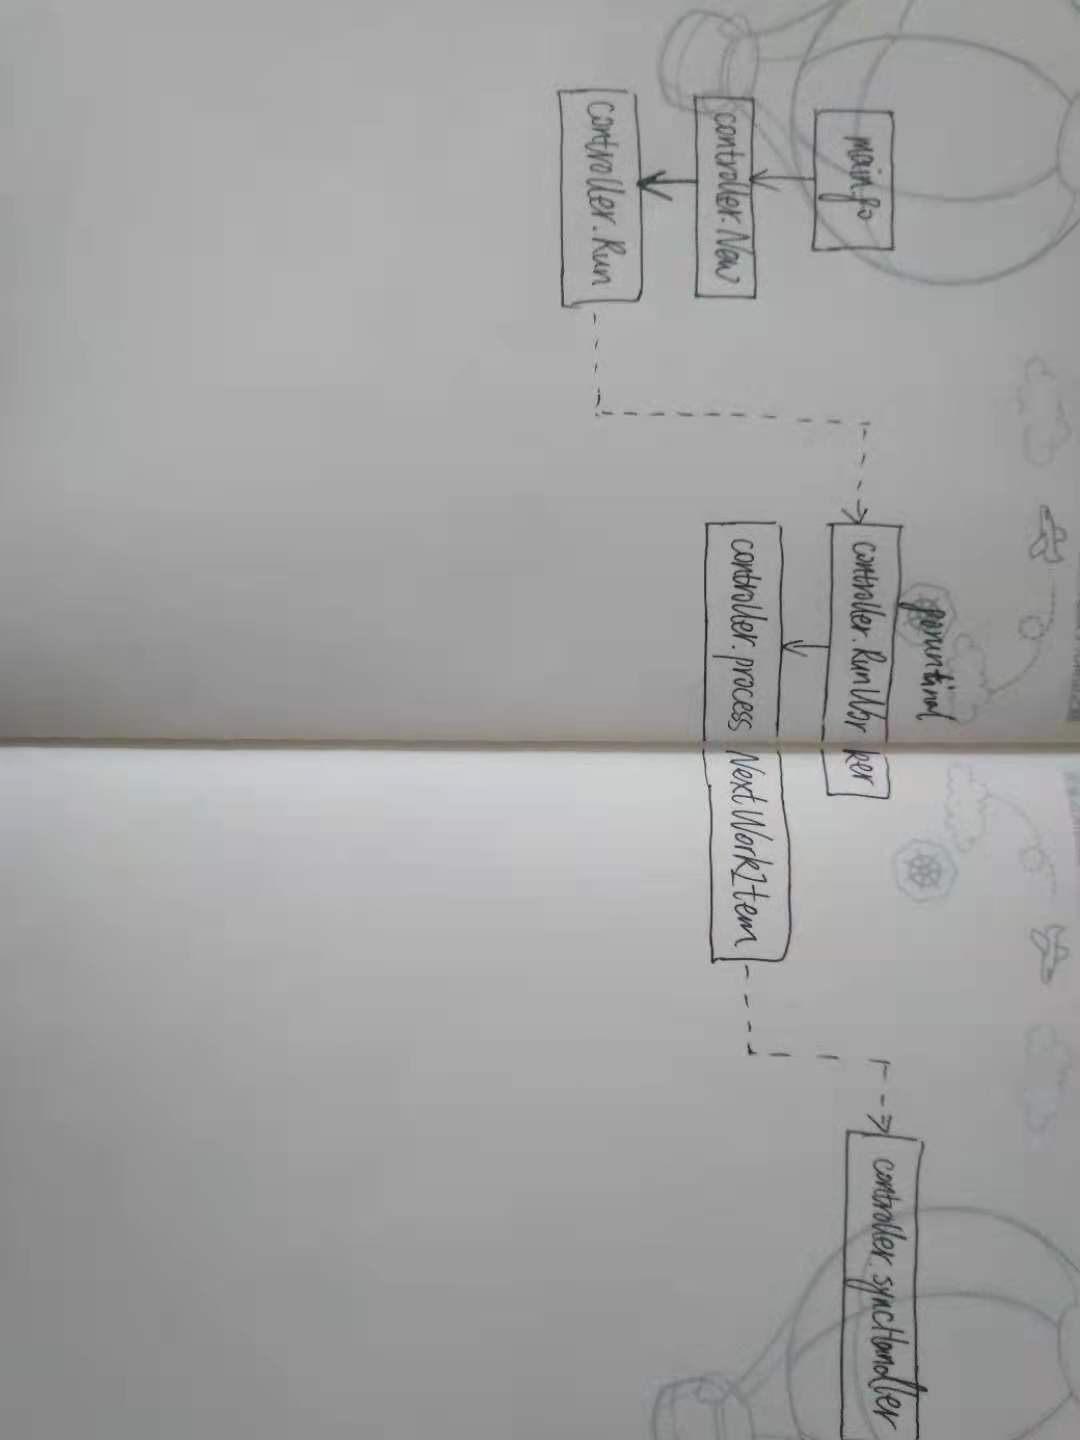 main.go
controller.New
controller.Run
controller.RunWorker
controller.processNextWorkItem
controller.syncHandler